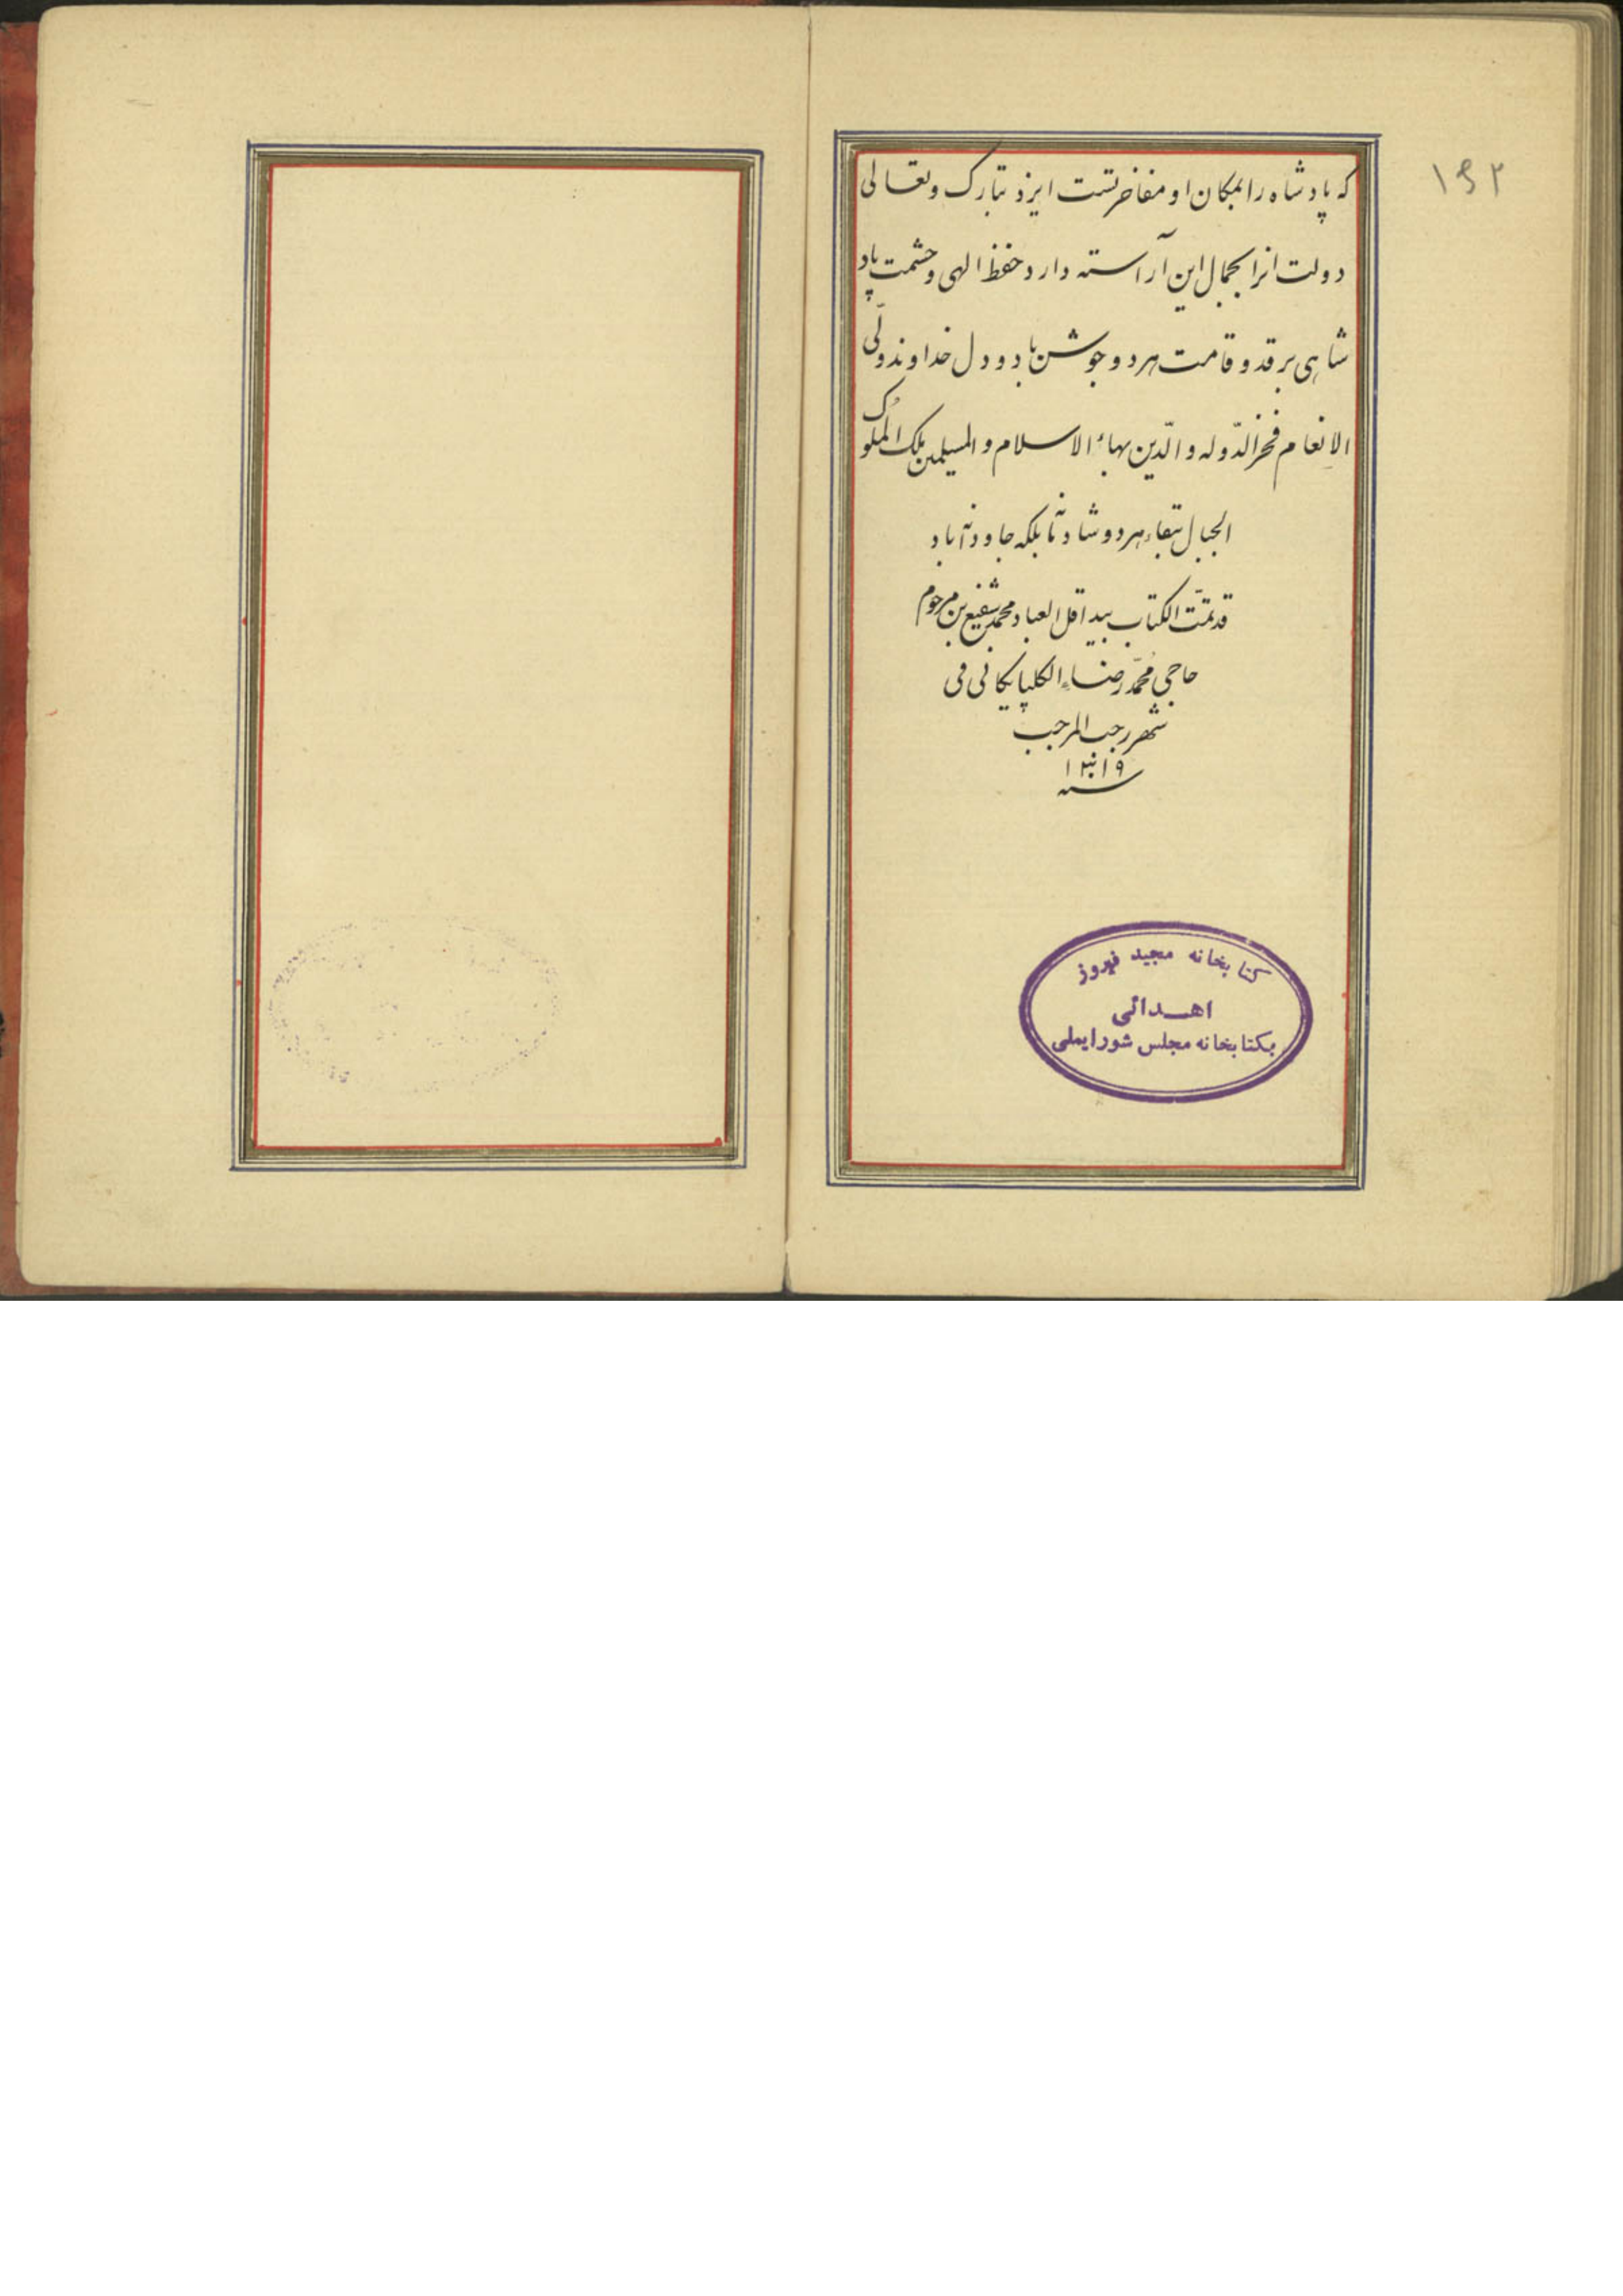 ۱۶۲
که پادشاه را بمکان او مفاخرتست ایزد تبارک و تعالی
دولت انرا بجمال این آراسته دارد حفظ الهی و حشمت پاد
شاهی بر قد و قامت هر دو جوشن باد و دل خداوند ولّی
الاِنعام فخر الدّوله و الدّین بهاء الاسلام و المسلمین ملک الملوک
الجبال ببقاء هر دو شادنه بلکه جاودانه باد
قد تمّت الکتاب بید اقل العباد محمد شفیع بن مرحوم
حاجی محمّد رضاء الکلپایکانی فی
شهر رجب المرجب
سنه ۱۳۱۹
کتابخانه مجید فیروز
اهدائی
بکتابخانه مجلس شورایملی